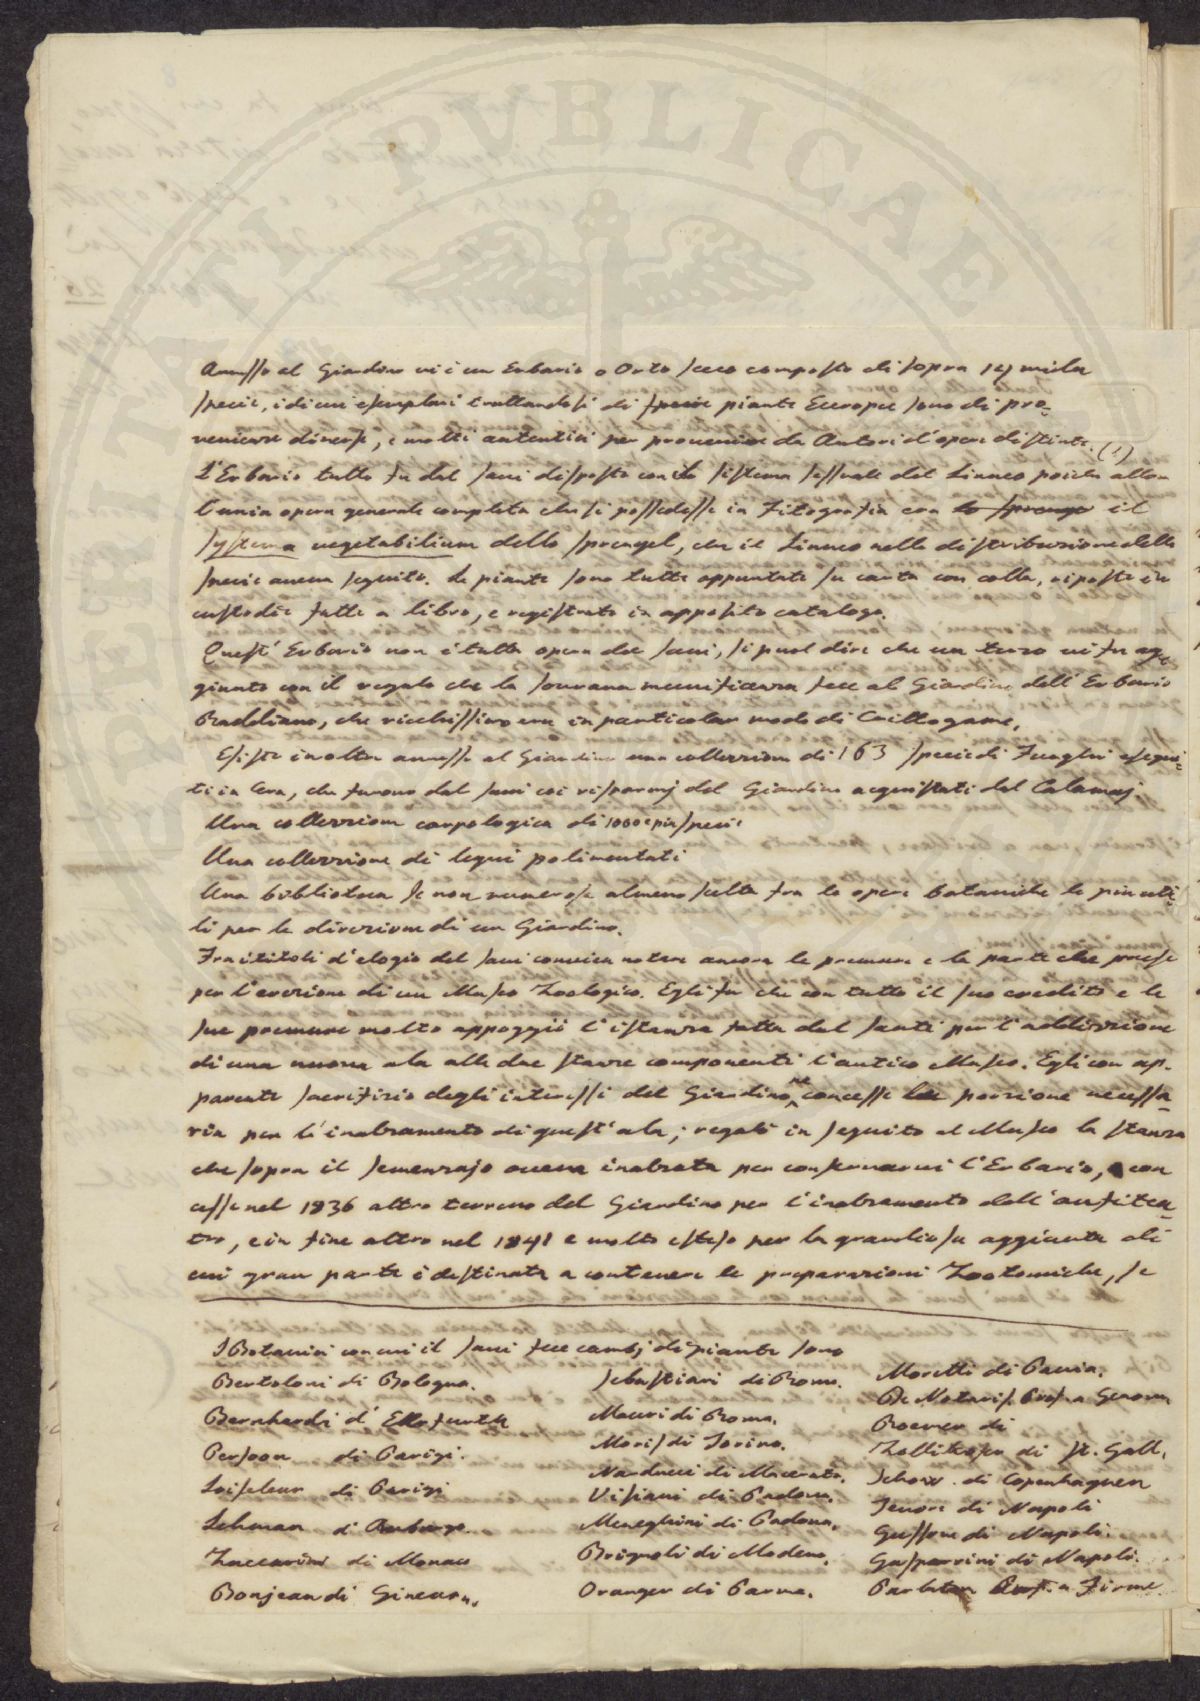 Annesso al Giardino vi è un Erbario o Orto secco composto di sopra mila
specie, i di cui esemplari trattandosi di specie piante Europee sono di pro-
venienze diverse, e molti autentici per provenire da Autori d'opere distinte. (1)
L'Erbario tutto fu dal Savi disposto con il sistema sessuale del Linneo poichè allora
l'unica opera generale completa che si possedesse in Fitografia era lo Sprenge il
systema vegetabilium dello Sprengel, che il Linneo nella distribuzione delle
specie aveva seguito. Le piante sono tutte appuntate su carta con colla, riposte in
custodie fatte a libro, e registrate in apposito catalogo.
Quest'Erbario non è tutta opera del Savi, si può dire che un terzo vi fu ag-
giunto con il regalo che la sovrana munificenza fece al Giardino dell'Erbario
Raddiano, che ricchissimo era in particolar modo di Crittogame.
Esiste inoltre annessa al Giardino una collezione di 163 specie di Funghi esegui-
ti in Cera, che furono dal Savi coi risparmj del Giardino acquistati dal Calamaj
Una collezione carpologica di 1000 e più specie
Una collezione di legni polimentati
Una biblioteca se non numerosa almeno scelta fra le opere botaniche le più uti-
li per la direzione di un Giardino.
Fra i titoli d'elogio del Savi convien notare ancora le premure e la parte che prese
per l'erezione di un Museo Zoologico. Egli fu che con tutto il suo credito e le
sue premure molto appoggiò l'istanza fatta dal Santi per l'addizione
di una nuova ala alle due stanze componenti l'antico Museo. Egli con ap-
parente sacrifizio degli interessi del Giardino ne concesse la porzione necessa-
ria per l'inalzamento di quest'ala; regalò in seguito al Museo la stanza
che sopra il semenzajo aveva inalzata per conservarvi l'Erbario, con
cesse nel 1836 altro terreno del Giardino per l'inalzamento dell'anfitea-
tro, e in fine altro nel 1841 e molto esteso per la grandiosa aggiunta di
cui gran parte è destinata a contenere le preparazioni Zootomiche, se
I Botanici con cui il Savi fece cambj di piante sono
Bertoloni di Bologna.
Bernhardi d' Erfurth
Persoon di Parigi.
Loiseleur di Parigi
Lehman d'Amburgo.
Zuccarini di Monaco
Bonjean di Ginevra.
Sebastiani di Roma.
Mauri di Roma.
Moris di Torino.
Narducci di Macerata.
Visiani di Padova.
Meneghini di Padova.
Brignoli di Modena.
Oranger di Parma.
Moretti di Pavia.
De Notaris Prof. a Genova.
Roemer di
Zollikofer di St. Gall.
Schow di Copenhaguen
Tenore di Napoli
Gussone di Napoli.
Gasparrini di Napoli.
Parlatore Prof. a Firenze